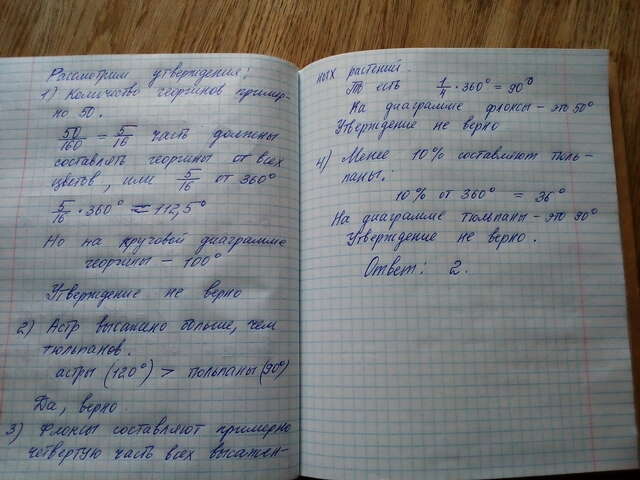 Рассмотрим утверждения:
1) Количество георгинов пример-
но 50.
50/160 = 5/16 часть должны
составлять георгины от всех
цветов, или 5/16 от 360°
5/16 · 360° = 112,5°
Но на круговой диаграмме
георгины – 100°
Утверждение не верно
2) Астр высажено больше, чем
тюльпанов.
астры (120°) > тюльпаны (90°)
Да, верно
3) Флоксы составляют примерно
четвертую часть всех высажен-
ных растений.
То есть 1/4 · 360° = 90°
На диаграмме флоксы – это 50°
Утверждение не верно
4) Менее 10% составляют тюль-
паны.
10% от 360° = 36°
На диаграмме тюльпаны – это 90°
Утверждение не верно.
Ответ: 2.